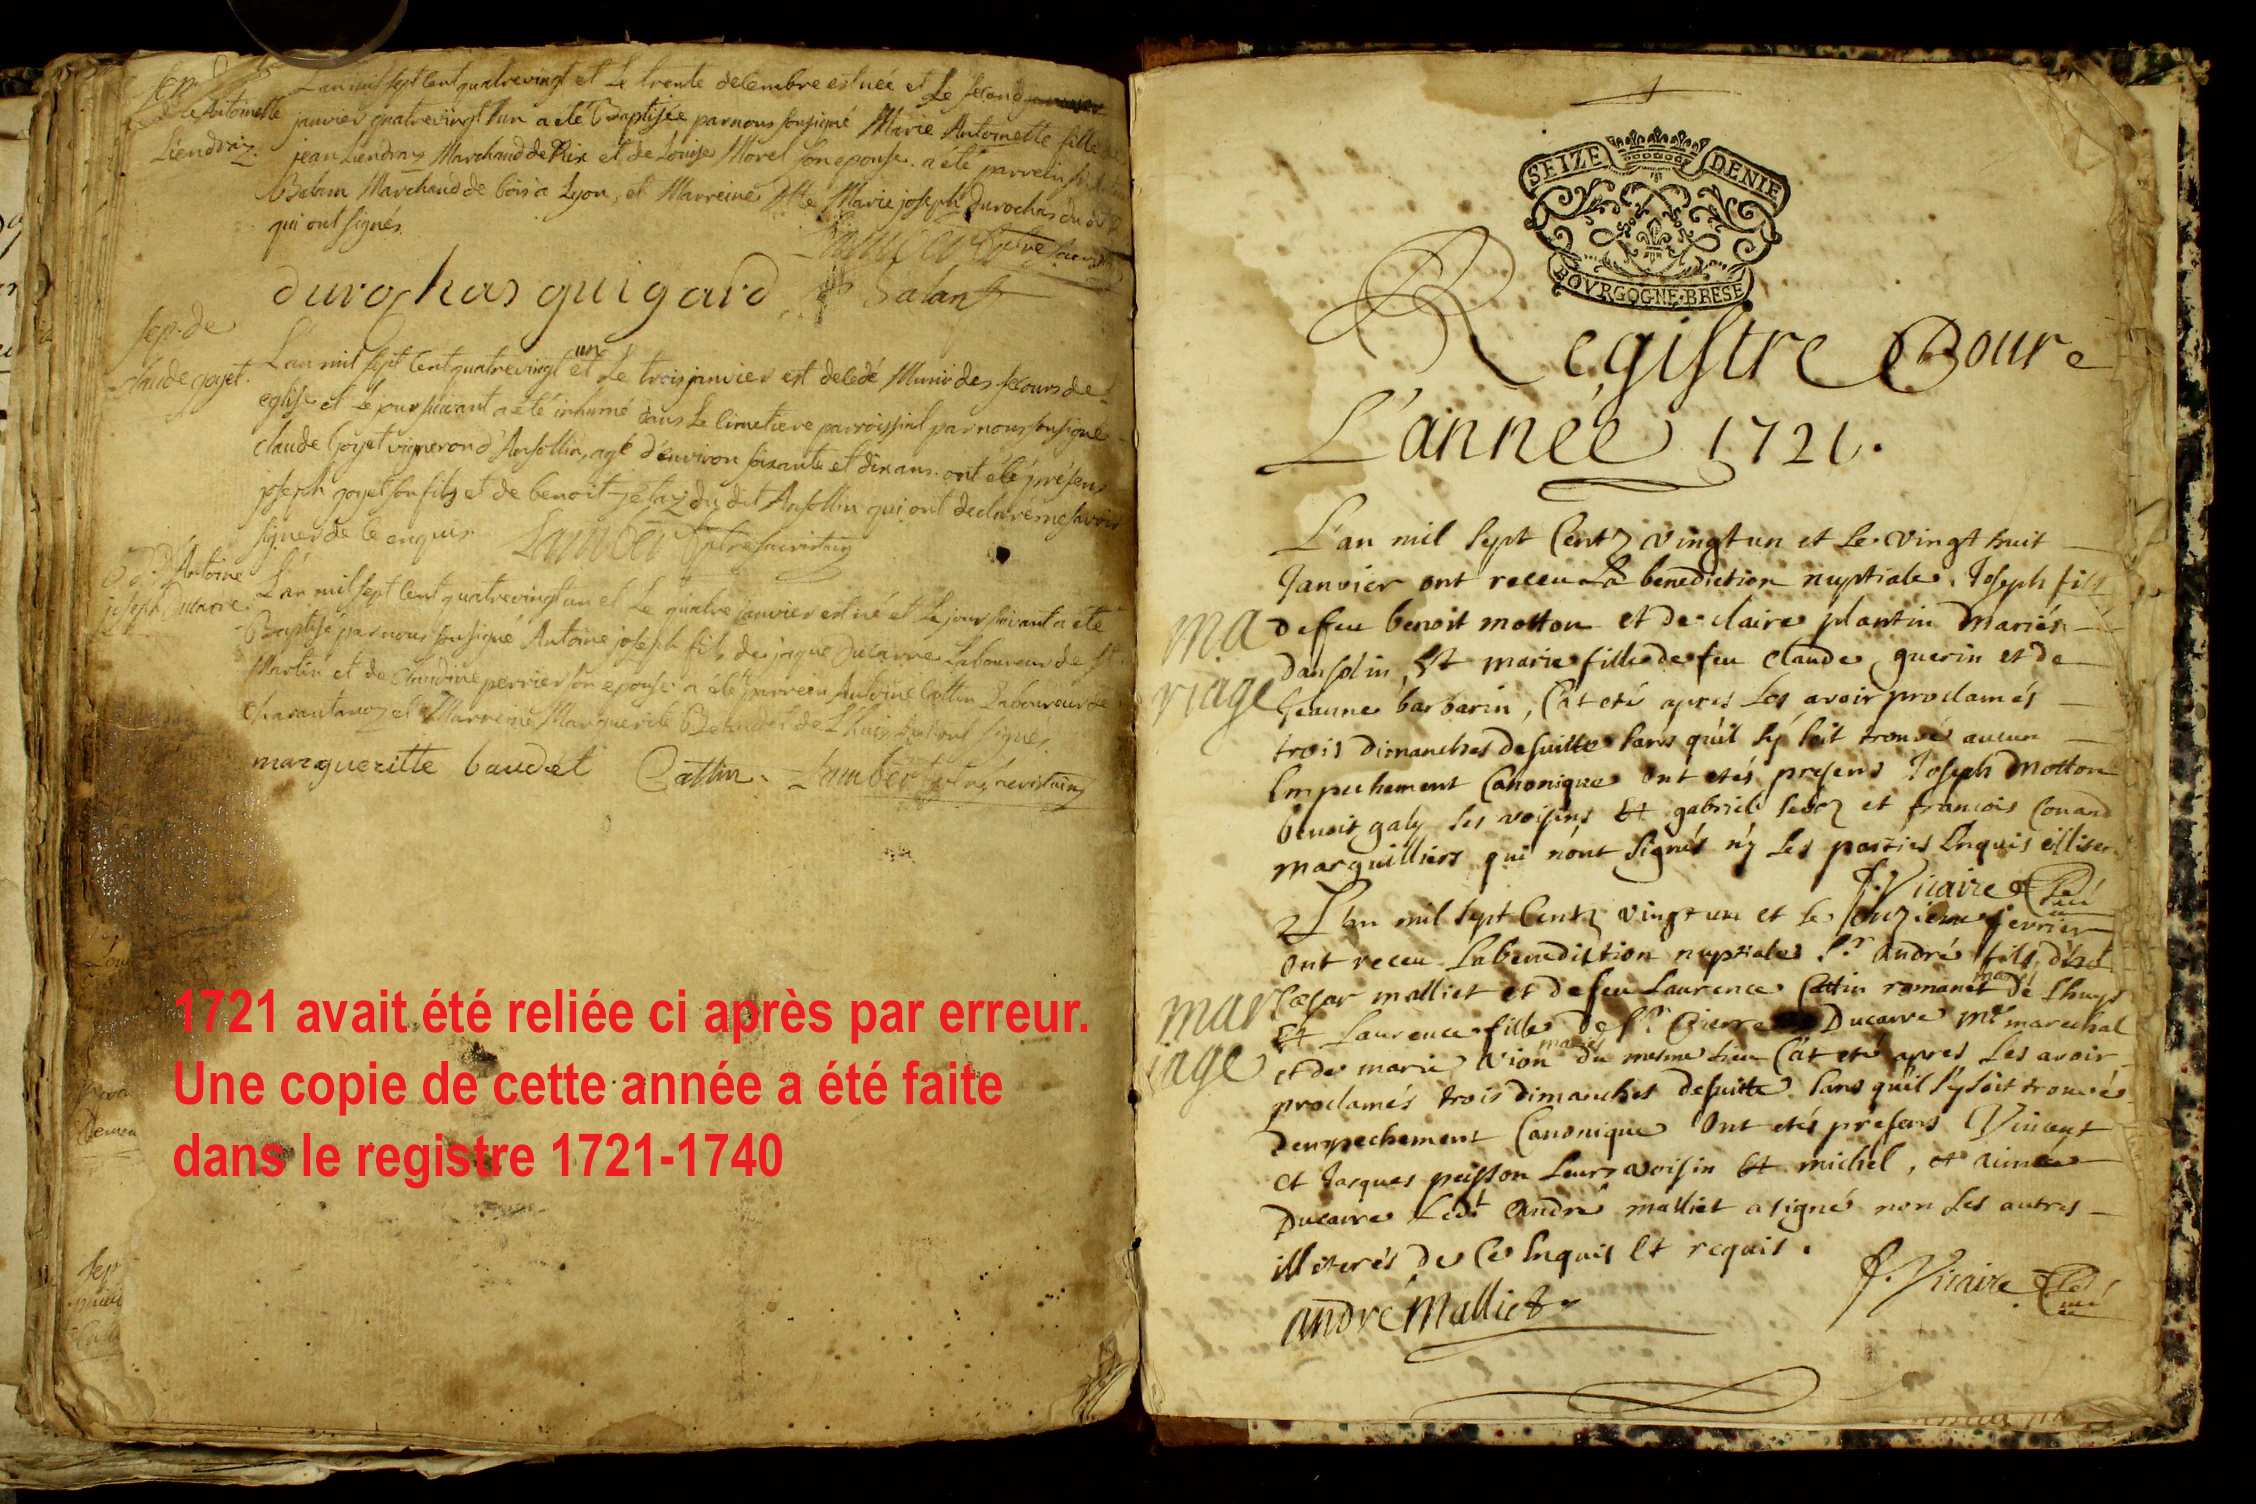 L'an mil sept cent quatrevingt et Le trente decembre est née et Le second
Antoinette
janvier quatrevingt un a eté Baptisée par nous soussigné Marie Antoinette fille
Liendraz.
jean Liendraz Marchand de Rix et de Loüise Morel son epouse. a été parrein
Balam Marchand de bois a Lyon, et Marreine Marie joseph Durochas du
qui ont signés.
durochas guigard
Balam
sep. de
claude goyet.
L'an mil sept cent quatrevingt et un Le trois janvier est decedé Muni des secours de
eglise et Le jour suivant a été inhumé dans Le cimetiere parroissial par nous soussigné
claude Goyet vigneron d'Ansollin, agé d'environ soixante et dix ans. ont été présens
joseph goyet son fils et de benoit du dit Ansollin qui ont declaré ne savoir
signer de ce enquis.
Lambert
Antoine
joseph Ducarre
L'an mil sept cent quatrevingt un et Le quatre janvier est né et Le jour suivant a été
Baptisé par nous soussigné Antoine joseph fils de jaque Ducarre Laboureur de St.
Martin et de Claudine perrier son epouse. a été parrein Antoine Cattin Laboureur de
et Marreine Marguerite de Lhuis qui ont signés.
margueritte baudet Cattin. Lambert
1721 avait été reliée ci après par erreur.
Une copie de cette année a été faite
dans le registre 1721-1740
SEIZE DENIE
BOVRGOGNE·BRESE
Registre Pour
L'année 1721.
L'an mil sept Centz vingt un et le vingt huit
Janvier ont receu La benediction nuptiale. Joseph fils
ma
de feu benoit motton et de claire plantin mariés
dansolin, Et marie fille de feu claude guerin et de
riage
Jeanne barbarin, C'at eté apres les avoir proclamés
trois dimanches de suitte sans qu'il s'y soit trouvé aucun
Empechement Canonique ont etés presens Joseph Motton
benoit galy les voisins Et gabriel et francois Couand
marguilliers qui n'ont signés n'y les parties Enquis
f. Vicaire
L'an mil sept Centz vingt un et le fevrier
Ont receu La benediction nuptiale Sr. André fils
mar
Cæsar malliet et de feu Laurence Cattin romanet mariés de Lhuys
Et Laurence fille de Sr. Pierre Ducarre Me. marechal
iage
et de marie Vion mariés du mesme lieu C'at eté apres les avoir
proclamés trois dimanches de suitte sans qu'il s'y soit trouvé
d'empechement Canonique Ont etés presens Vincent
et Jacques peysson leurs voisin Et michel, et aimee
Ducarre Ledt. André malliet a signé non les autres
illiterés de Ce Enquis Et requis.
f. Vicaire
andre Malliet